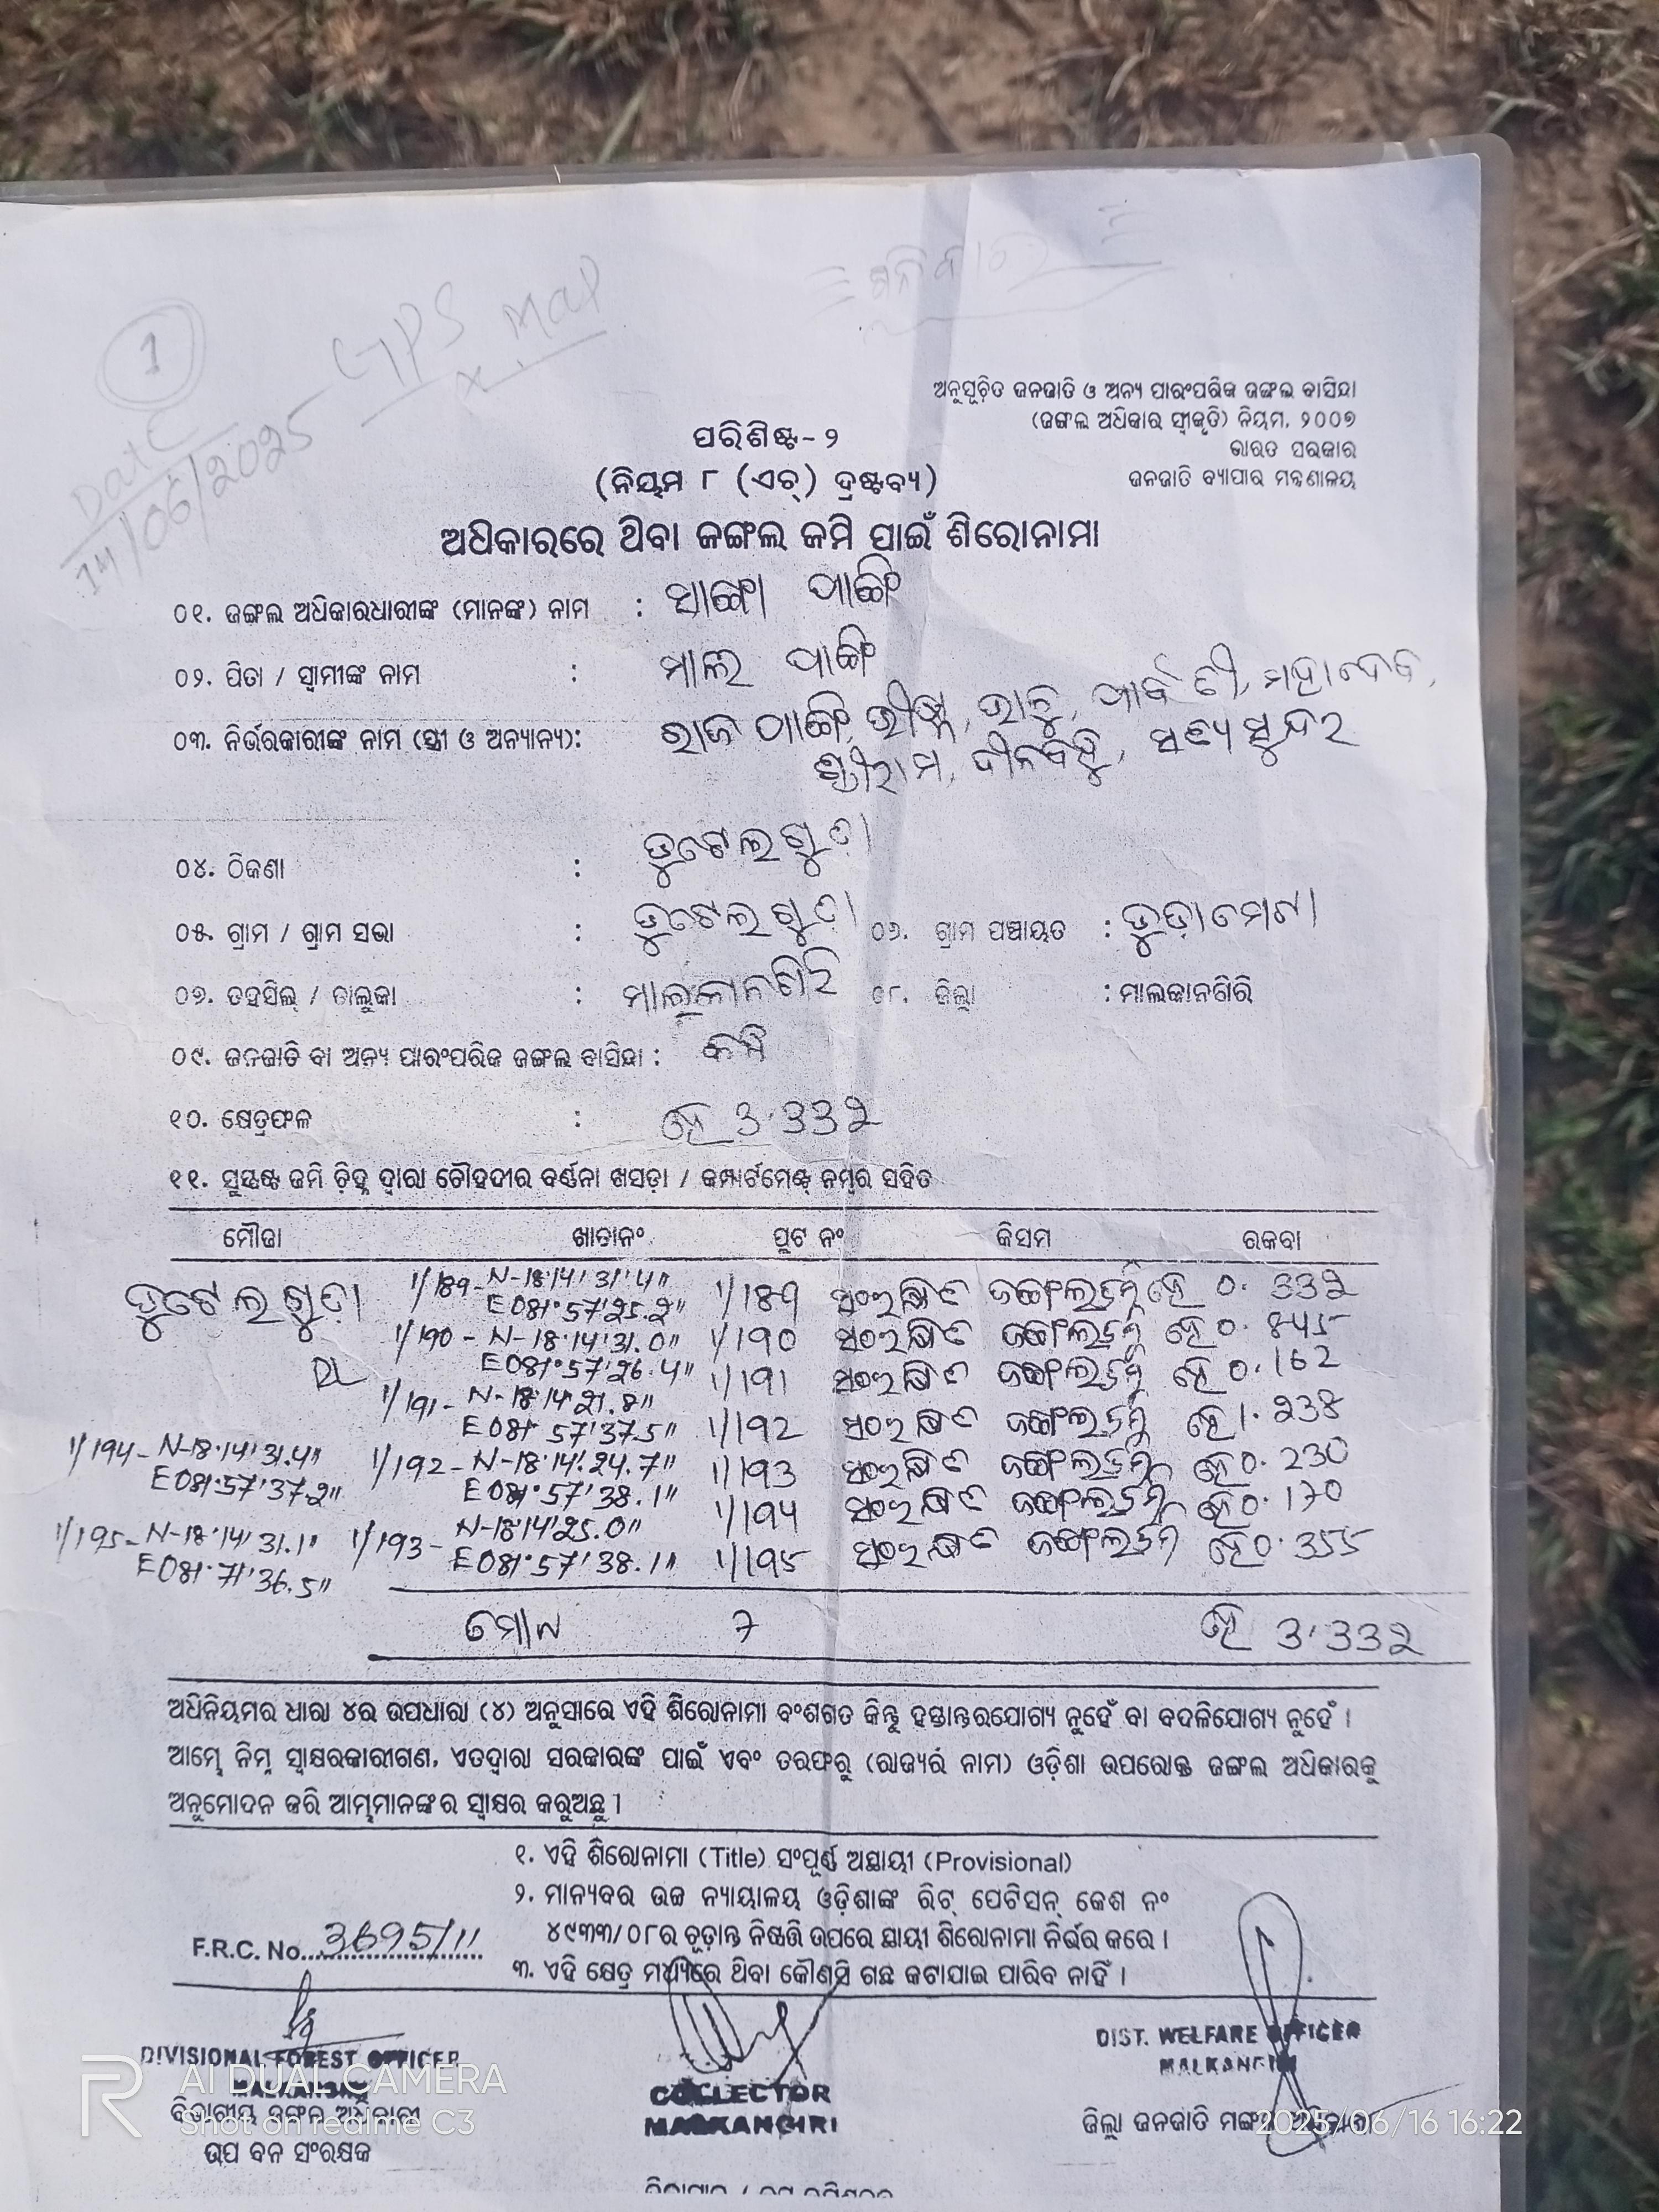 1
Date
14/06/2025
GPS Map
ଅନୁସୂଚିତ ଜନଜାତି ଓ ଅନ୍ୟ ପାରଂପରିକ ଜଙ୍ଗଲ ବାସିନ୍ଦା
(ଜଙ୍ଗଲ ଅଧିକାର ସ୍ୱୀକୃତି) ନିୟମ, ୨୦୦୭
ଭାରତ ସରକାର
ଜନଜାତି ବ୍ୟାପାର ମନ୍ତ୍ରଣାଳୟ
ପରିଶିଷ୍ଟ-୨
(ନିୟମ ୮ (ଏଚ୍) ଦ୍ରଷ୍ଟବ୍ୟ)
ଅଧିକାରରେ ଥିବା ଜଙ୍ଗଲ ଜମି ପାଇଁ ଶିରୋନାମା
୦୧. ଜଙ୍ଗଲ ଅଧିକାରଧାରୀଙ୍କ (ମାନଙ୍କ) ନାମ :
୦୨. ପିତା / ସ୍ୱାମୀଙ୍କ ନାମ :
୦୩. ନିର୍ଭରକାରୀଙ୍କ ନାମ (ସ୍ତ୍ରୀ ଓ ଅନ୍ୟାନ୍ୟ): ପାର୍ବତୀ, ମହାଦେବ,
ଶ୍ରୀରାମ, ଦୀନବନ୍ଧୁ, ସତ୍ୟସୁନ୍ଦର
୦୪. ଠିକଣା : ଡୁଟେଲଗୁଡ଼ା
୦୫. ଗ୍ରାମ / ଗ୍ରାମ ସଭା : ଡୁଟେଲଗୁଡ଼ା ୦୬. ଗ୍ରାମ ପଞ୍ଚାୟତ :
୦୭. ତହସିଲ୍ / ତାଲୁକା : ମାଲକାନଗିରି ୦୮. ଜିଲ୍ଲା : ମାଲକାନଗିରି
୦୯. ଜନଜାତି ବା ଅନ୍ୟ ପାରଂପରିକ ଜଙ୍ଗଲ ବାସିନ୍ଦା :
୧୦. କ୍ଷେତ୍ରଫଳ : ହେ 3.33୨
୧୧. ସୁସ୍ପଷ୍ଟ ଜମି ଚିହ୍ନ ଦ୍ୱାରା ଚୌହଦୀର ବର୍ଣ୍ଣନା ଖସଡ଼ା / କମ୍ପାର୍ଟମେଣ୍ଟ ନମ୍ବର ସହିତ
ମୌଜା ଖାତାନଂ ପ୍ଲଟ ନଂ କିସମ ରକବା
ଡୁଟେଲଗୁଡ଼ା 1/189- N-18°14'31.4" 1/189 ସଂରକ୍ଷିତ ଜଙ୍ଗଲ ହେ 0.33୨
E081°57'25.2"
1/190 - N-18°14'31.0" 1/190 ସଂରକ୍ଷିତ ଜଙ୍ଗଲ ହେ 0.845
E081°57'26.4"
1/191- N-18°14'21.8" 1/191 ସଂରକ୍ଷିତ ଜଙ୍ଗଲ ହେ 0.162
E081°57'37.5" 1/192 ସଂରକ୍ଷିତ ଜଙ୍ଗଲ ହେ 1.238
1/194- N-18°14'31.4" 1/192- N-18°14'24.7" 1/193 ସଂରକ୍ଷିତ ଜଙ୍ଗଲ ହେ 0.230
E081°57'37.2" E081°57'38.1" 1/194 ସଂରକ୍ଷିତ ଜଙ୍ଗଲ ହେ 0.170
1/195- N-18°14'31.1" 1/193- N-18°14'25.0" 1/195 ସଂରକ୍ଷିତ ଜଙ୍ଗଲ ହେ 0.355
E081°71'36.5" E081°57'38.1"
ମୋଟ 7 ହେ 3.33୨
ଅଧିନିୟମର ଧାରା ୪ର ଉପଧାରା (୪) ଅନୁସାରେ ଏହି ଶିରୋନାମା ବଂଶଗତ କିନ୍ତୁ ହସ୍ତାନ୍ତରଯୋଗ୍ୟ ନୁହେଁ ବା ବଦଳିଯୋଗ୍ୟ ନୁହେଁ ।
ଆମ୍ଭେ ନିମ୍ନ ସ୍ୱାକ୍ଷରକାରୀଗଣ, ଏତଦ୍ୱାରା ସରକାରଙ୍କ ପାଇଁ ଏବଂ ତରଫରୁ (ରାଜ୍ୟର ନାମ) ଓଡ଼ିଶା ଉପରୋକ୍ତ ଜଙ୍ଗଲ ଅଧିକାରକୁ
ଅନୁମୋଦନ କରି ଆମ୍ଭମାନଙ୍କର ସ୍ୱାକ୍ଷର କରୁଅଛୁ ।
୧. ଏହି ଶିରୋନାମା (Title) ସଂପୂର୍ଣ୍ଣ ଅସ୍ଥାୟୀ (Provisional)
୨. ମାନ୍ୟବର ଉଚ୍ଚ ନ୍ୟାୟାଳୟ ଓଡ଼ିଶାଙ୍କ ରିଟ୍ ପେଟିସନ୍ କେଶ ନଂ
୪୯୩୩/୦୮ର ଚୂଡ଼ାନ୍ତ ନିଷ୍ପତ୍ତି ଉପରେ ସ୍ଥାୟୀ ଶିରୋନାମା ନିର୍ଭର କରେ ।
F.R.C. No. 3695/11
୩. ଏହି କ୍ଷେତ୍ର ମଧ୍ୟରେ ଥିବା କୌଣସି ଗଛ କଟାଯାଇ ପାରିବ ନାହିଁ ।
DIVISIONAL FOREST OFFICER
MALKANGIRI
ବିଭାଗୀୟ ଜଙ୍ଗଲ ଅଧିକାରୀ
ଉପ ବନ ସଂରକ୍ଷକ
COLLECTOR
MALKANGIRI
DIST. WELFARE OFFICER
MALKANGIRI
ଜିଲ୍ଲା ଜନଜାତି ମଙ୍ଗଳ
AI DUAL CAMERA
Shot on realme C3
2025/06/16 16:22